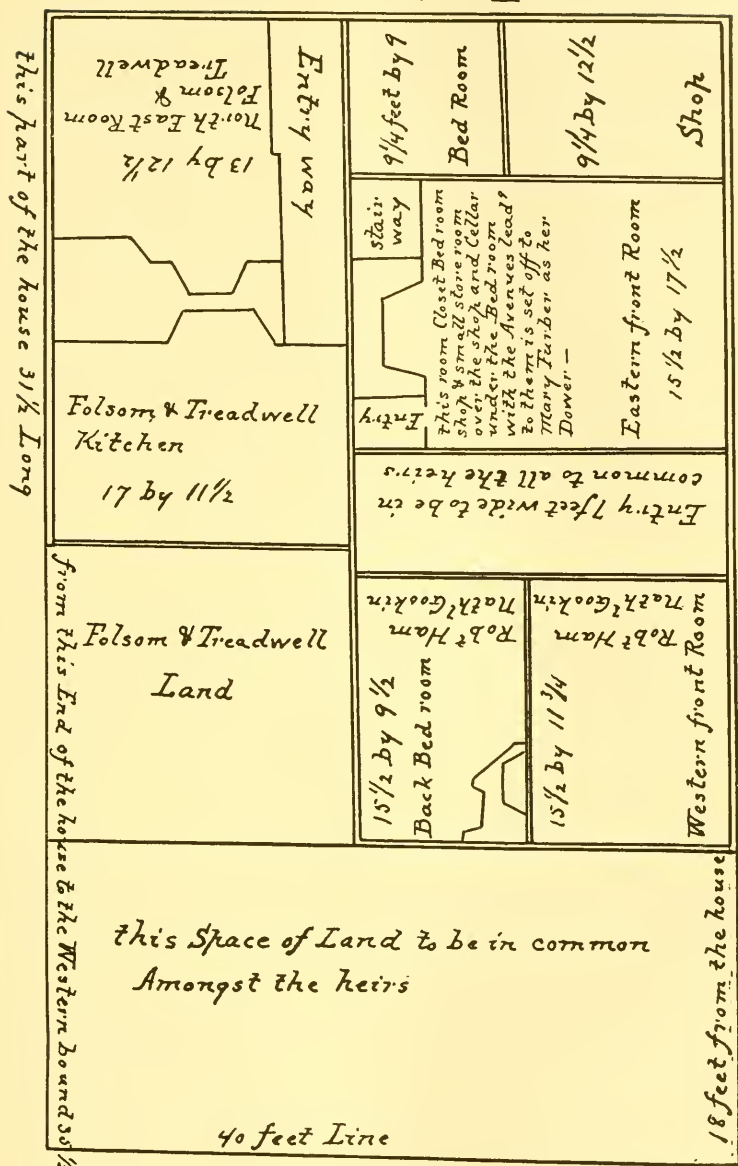 this part of the house 31½ Long
13 by 12½
North East Room
Folsom &
Treadwell
Entry way
9¼ feet by 9
Bed Room
9¼ by 12½
Shop
stair
way
Entry
this room Closet Bed room
shop & small store room
over the shop and Cellar
under the Bedroom
with the Avenues leadᵍ
to them is set off to
Mary Furber as her
Dower —
Eastern front Room
15½ by 17½
Folsom, & Treadwell
Kitchen
17 by 11½
Entry 7 feet wide to be in
common to all the heirs
Folsom & Treadwell
Land
Robᵗ Ham
Nathˡ Gookin
15½ by 9½
Back Bed room
Robᵗ Ham
Nathˡ Gookin
15½ by 11¾
Western front Room
from this End of the house to the Western bound
this Space of Land to be in common
Amongst the heirs
40 feet Line
18 feet from the house